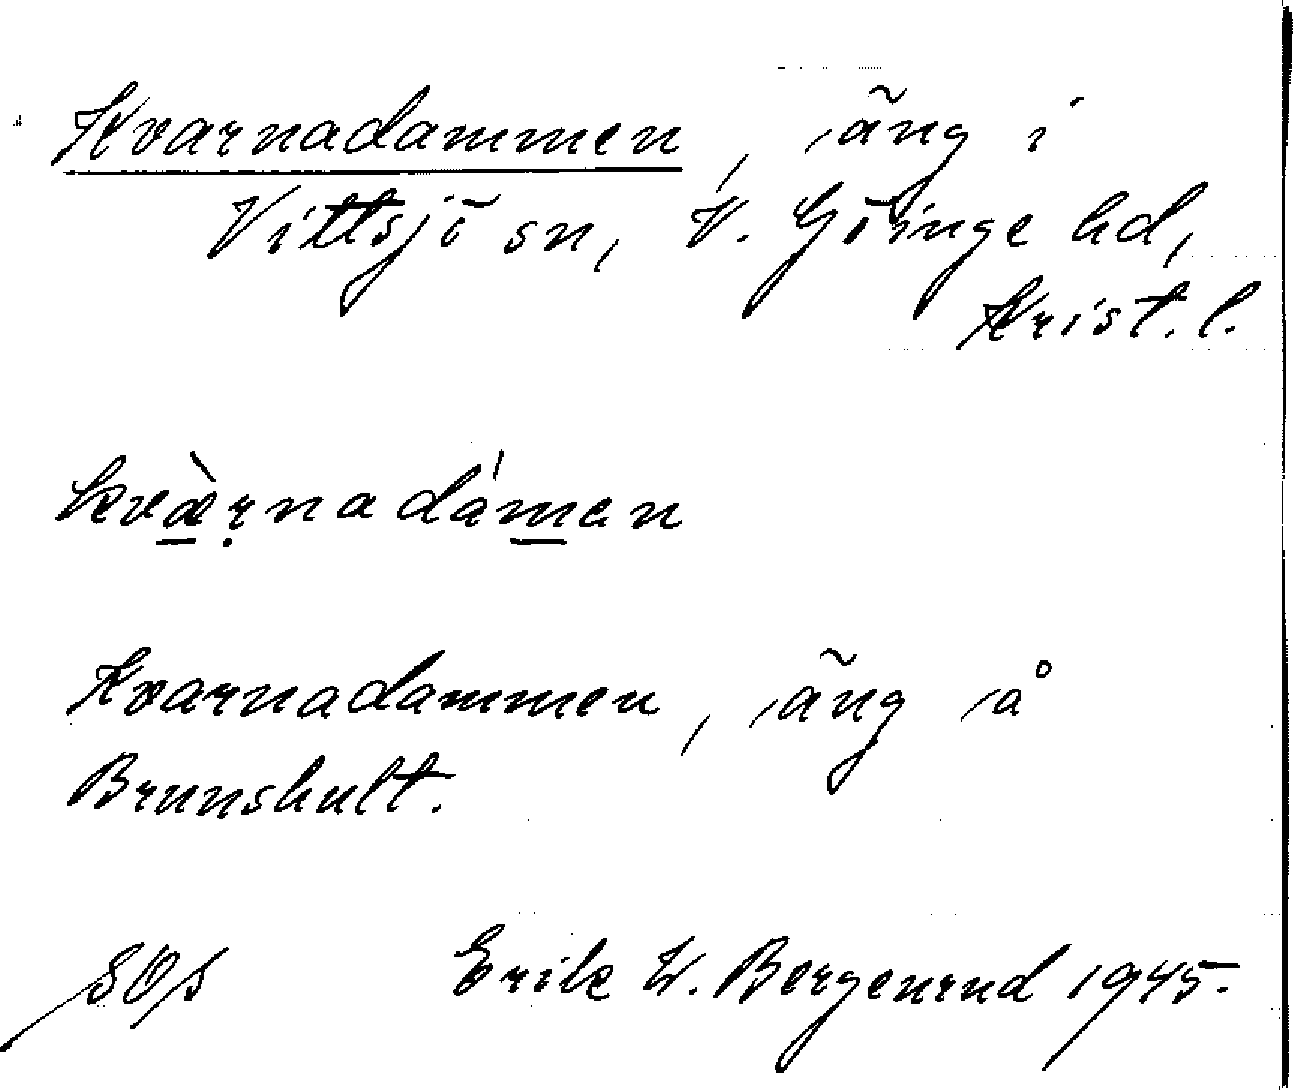 Kvarnadammen, äng i
Vittsjö sn, V. Göinge hd,
Krist. l.
kvæ̀ṛnadámen
Kvarnadammen, äng å
Brunshult.
Erik W. Bergenrud 1945.